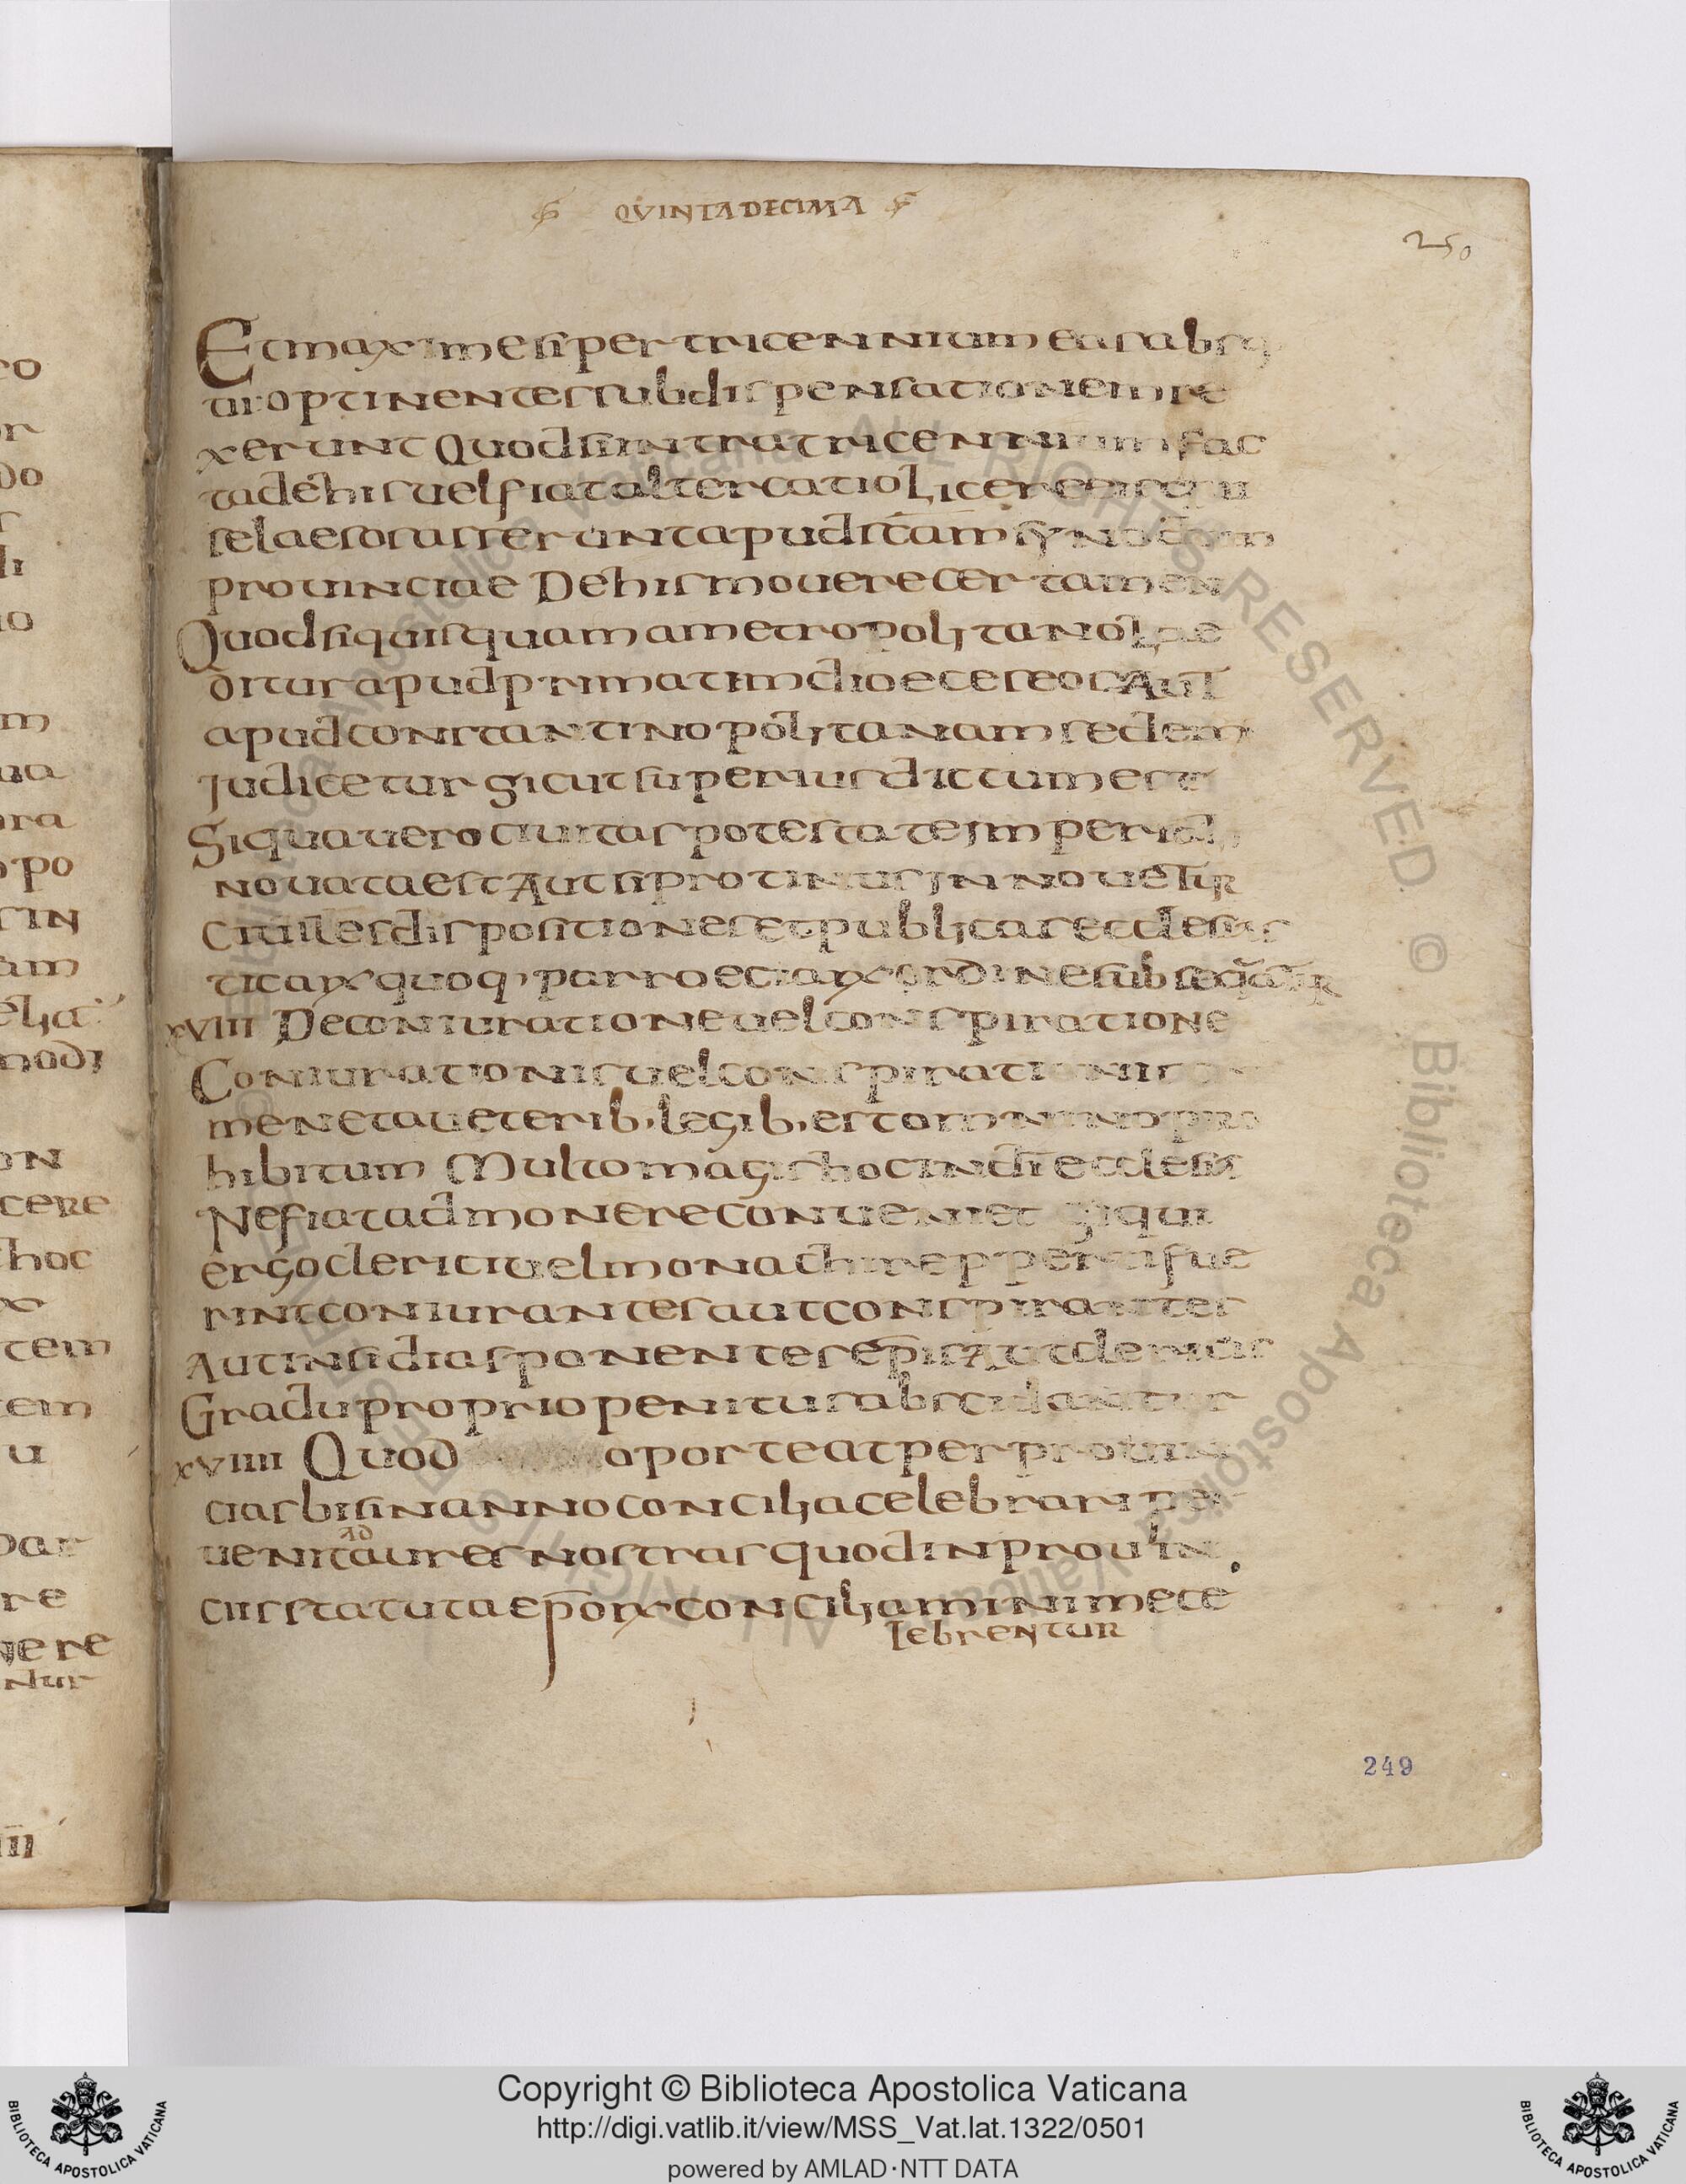 QVINTADECIMA
250
Et maxime si per tricennium eas absq;
ui optinentes sub dispensationem re
xerunt Quod si intra tricennium fac
ta de his uel fiat altercatio Licere eis qui
se laesos asserunt apud scam synodum
prouinciae De his mouere certamen
Quod si quisquam a metropolitano lae
ditur apud primatem dioeceseos Aut
apud constantinopolitanam sedem
Judicetur sicut superius dictum est
Si qua uero ciuitas potestate Imperiali
nouata est Aut si protinus Innouetur
Ciuiles dispositiones et publicas ecclesias
ticarx quoq, parroeciarx ordine subseqatur
xVIII De coniuratione uel conspiratione
Coniurationis uel conspirationis
men et a ueterib, legib, est omnino pro
hibitum Multo magis hoc In di ecclesia
Ne fiat admonere conueniet Si qui
ergo clerici uel monachi repperti fue
rint coniurantes aut conspirantes
Aut Insidias ponentes epis Aut clericis
Gradu proprio penitus abscidantur
xVIIII Quod oporteat per prouin
cias bis In anno concilia celebrari per
uenit ad aures nostras quod In prouin
ciis statuta eporx concilia minime ce
lebrentur
249
ro
or
do
m
ora
po
sin
am
on
cere
hoc
tem
em
u
re
ntur
Copyright © Biblioteca Apostolica Vaticana
http://digi.vatlib.it/view/MSS_Vat.lat.1322/0501
powered by AMLAD·NTT DATA
BIBLIOTECA APOSTOLICA VATICANA
BIBLIOTECA APOSTOLICA VATICANA